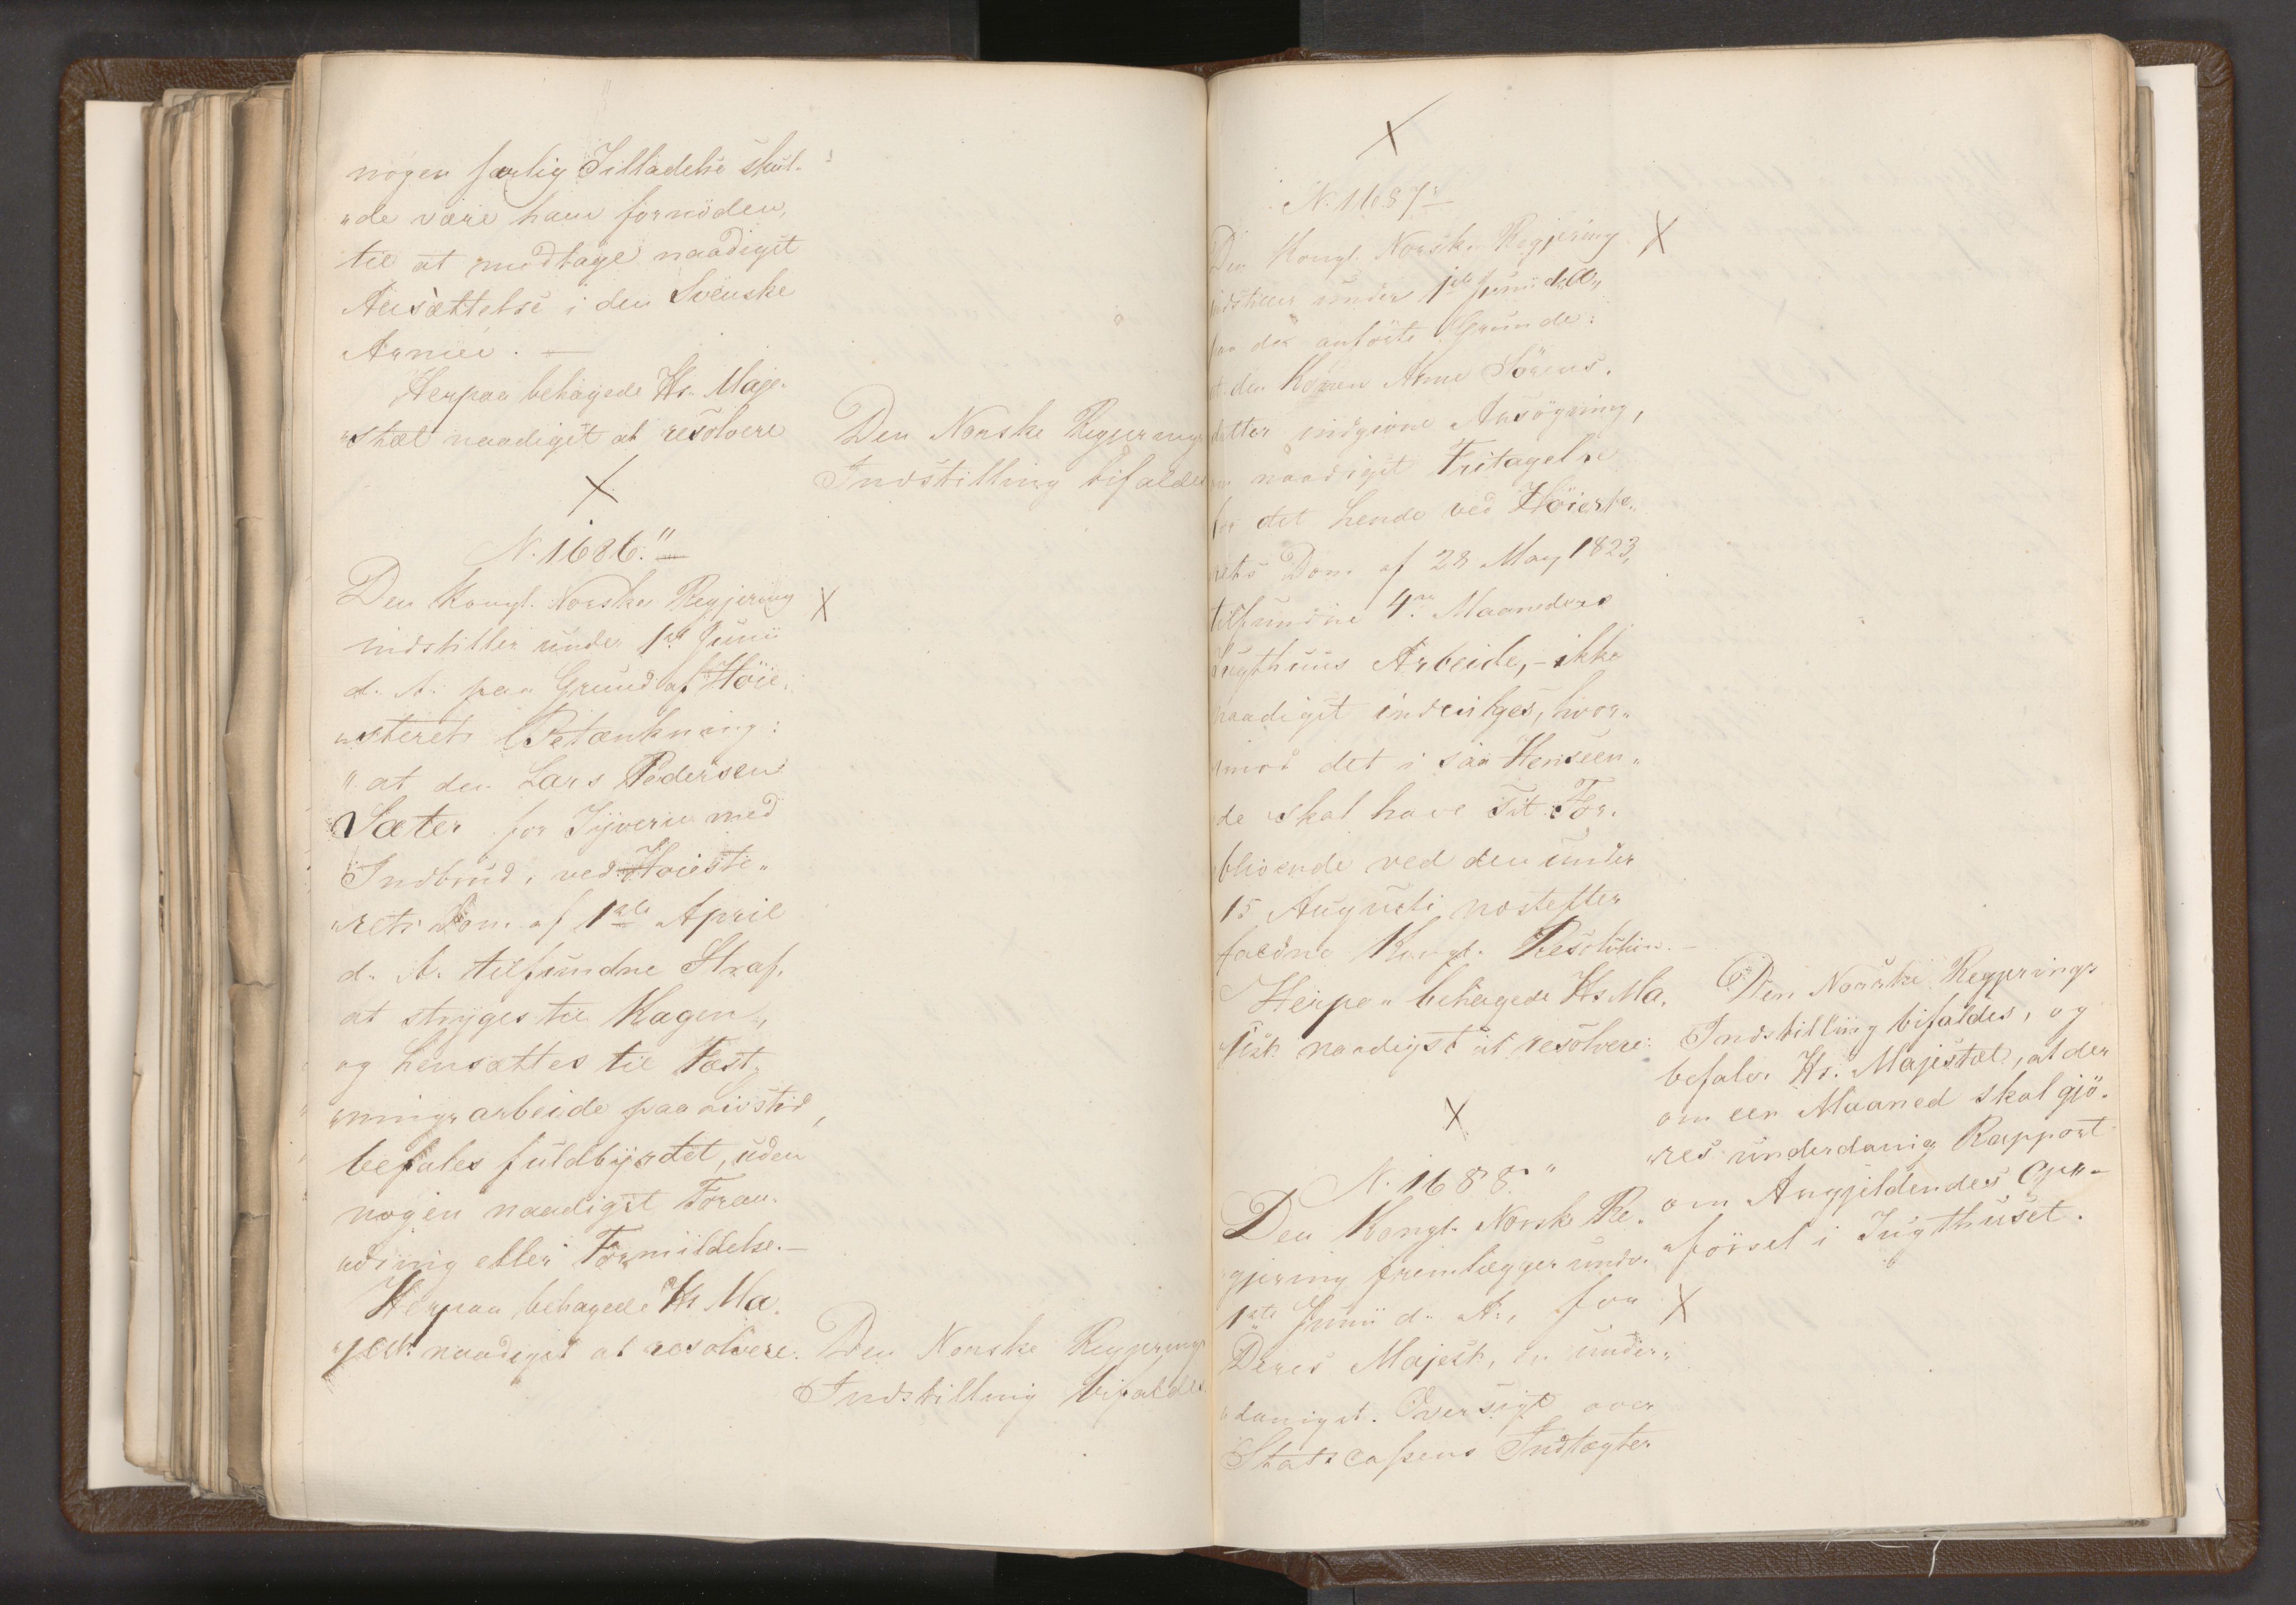 nogen særlig Tilladelse skul-
"de være ham fornöden,
til at modtage naadigst
Ansættelse i den Svenske
Armée. —
Herpaa behagede Hs. Maje-
"stæt naadigst at resolvere
Den Norske Regjerings
Indstilling bifaldes
N. 1686."
Den Kongl. Norske Regjering
indstiller under 1ste Junii
d. A. paa Grund af Höie-
"sterets Betænkning:
"at den Lars Pedersen
Sæter for Tyverie med
Indbrud, ved Höieste-
"rets Dom af 1ste April
d. A. tilfundne Straf,
at stryges til Kagen,
og hensættes til Fæst-
"ningsarbeide paa Livstid,
befales fuldbyrdet, uden
nogen naadigst Foran-
"dring eller Formildelse. —
Herpaa behagede Hs Ma-
"jest. naadigst at resolvere.
Den Norske Regjerings
Indstilling bifaldes
N. 1687"
Den Kongl. Norske Regjering
indstiller under 1ste Junii d. A.,
paa der anförte Grunde:
at den Konen Anne Sörens-
datter indgivne Ansögning,
om naadigst Fritagelse
for det hende ved Höieste-
rets Dom af 28 May 1823,
tilfundne 4re Maaneders
Tugthuus Arbeide, - ikke
naadigst indvilges, hvor-
imod det i saa Henseen-
de skal have sit For-
blivende ved den under
15 Augusti næstefter
faldne Kongl. Resolution. —
Herpaa behagede Hs Ma-
jest. naadigst at resolvere:
Den Norske Regjerings
Indstilling bifaldes, og
befaler Hs. Majestæt, at der
om een Maaned skal gjö-
"res underdanig Rapport
om Angjeldendes Op-
"försel i Tugthuset.
N. 1688."
Den Kongl. Norske Re-
gjering fremlægger under
1ste Junii d. A., for
Deres Majest. en under-
"danigst. Oversigt over
Statscassens Indtægter